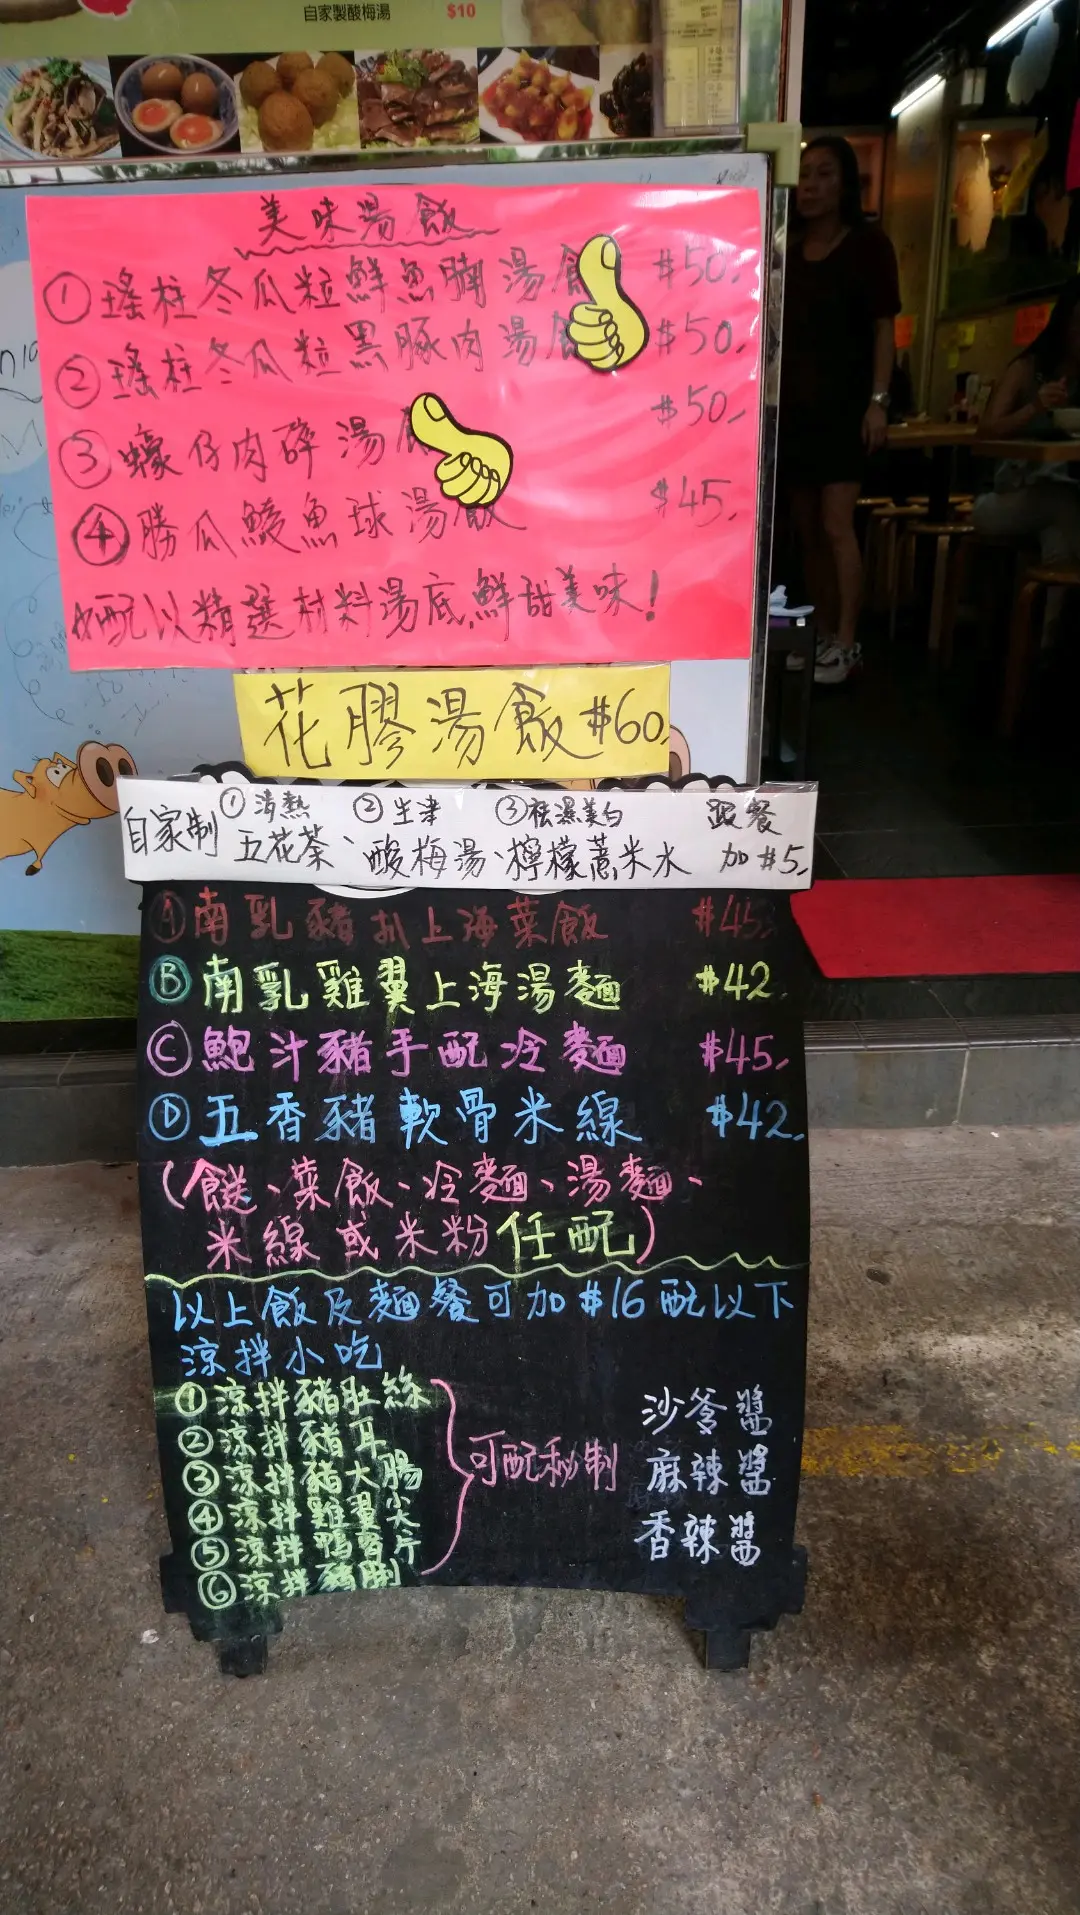 自家製酸梅湯 $10
美味湯飯
① 瑤柱冬瓜粒鮮魚腩湯 $50.
② 瑤柱冬瓜粒黑豚肉湯 $50.
③ 蠔仔肉碎湯 $50.
④ 勝瓜鯪魚球湯飯 $45.
配以精選材料湯底,鮮甜美味!
花膠湯飯 $60.
自家制 ①清熱 五花茶、②生津 酸梅湯、③祛濕美白 檸檬薏米水 跟餐 加$5.
Ⓐ 南乳豬扒上海菜飯 $45.
Ⓑ 南乳雞翼上海湯麵 $42.
Ⓒ 鮑汁豬手配冷麵 $45.
Ⓓ 五香豬軟骨米線 $42.
(餸、菜飯、冷麵、湯麵、
米線或米粉任配)
以上飯及麵餐可加$16配以下
涼拌小吃
① 涼拌豬肚絲
② 涼拌豬耳
③ 涼拌豬大腸
④ 涼拌雞翼尖
⑤ 涼拌鴨腎片
⑥ 涼拌豬脷
可配秘制
沙爹醬
麻辣醬
香辣醬